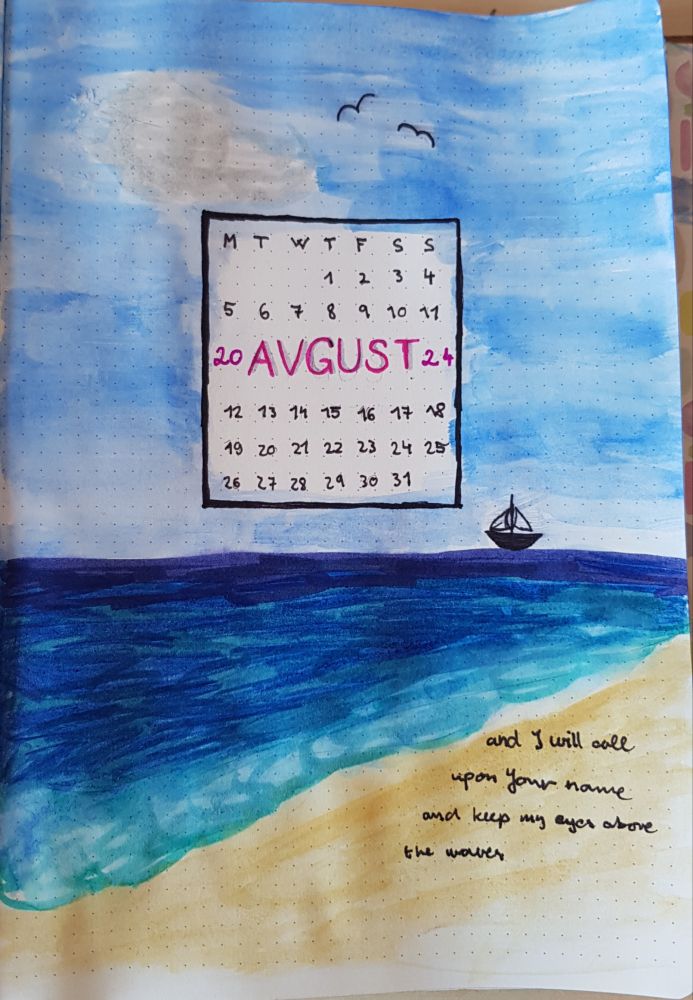 M T W T F S S
1 2 3 4
5 6 7 8 9 10 11
20 AVGUST 24
12 13 14 15 16 17 18
19 20 21 22 23 24 25
26 27 28 29 30 31
and I will call
upon Your name
and keep my eyes above
the waves